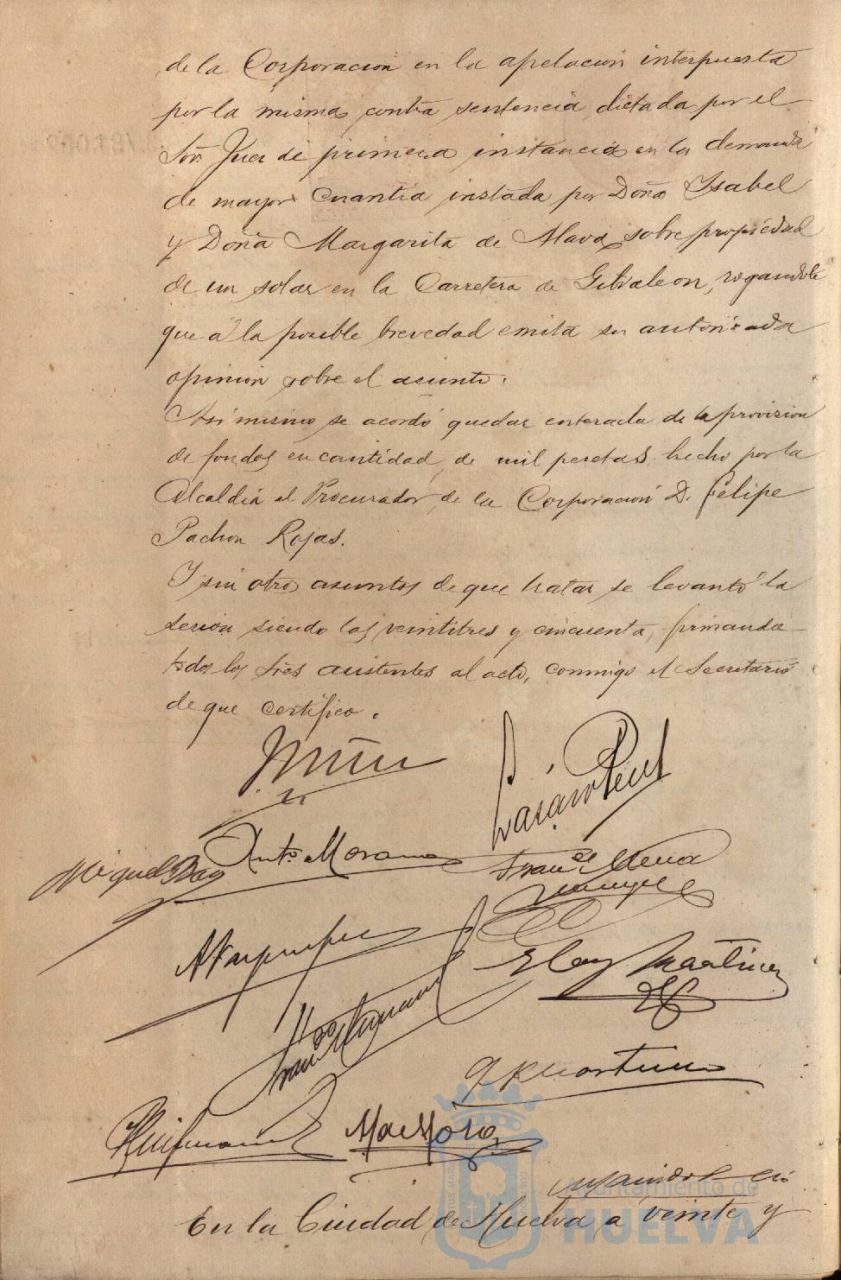 de la Corporación en la apelación interpuesta
por la misma contra sentencia dictada por el
Sor Juez de primera instancia en la demanda
de mayor cuantia instada por Doña Isabel
y Doña Margarita de Alava sobre propiedad
de un solar en la Carretera de Gibraleon, rogandole
que á la posible brevedad emita su autorizada
opinion sobre el asunto.
Asi mismo se acordó quedar enterada de la provision
de fondos en cantidad de mil pesetas hecho por la
Alcaldia al Procurador de la Corporación D. Felipe
Pachon Rojas.
Y sin otro asuntos de que tratar se levantó la
sesion siendo las veintitres y cincuenta, firmando
todos los Sres asistentes al acto, conmigo el Secretario
de que certifico.
Miguel Ant.º Morano Fran.co Mena
Eloy Martinez
Ayuntamiento de
En la Ciudad de Huelva a veinte y
HUELVA